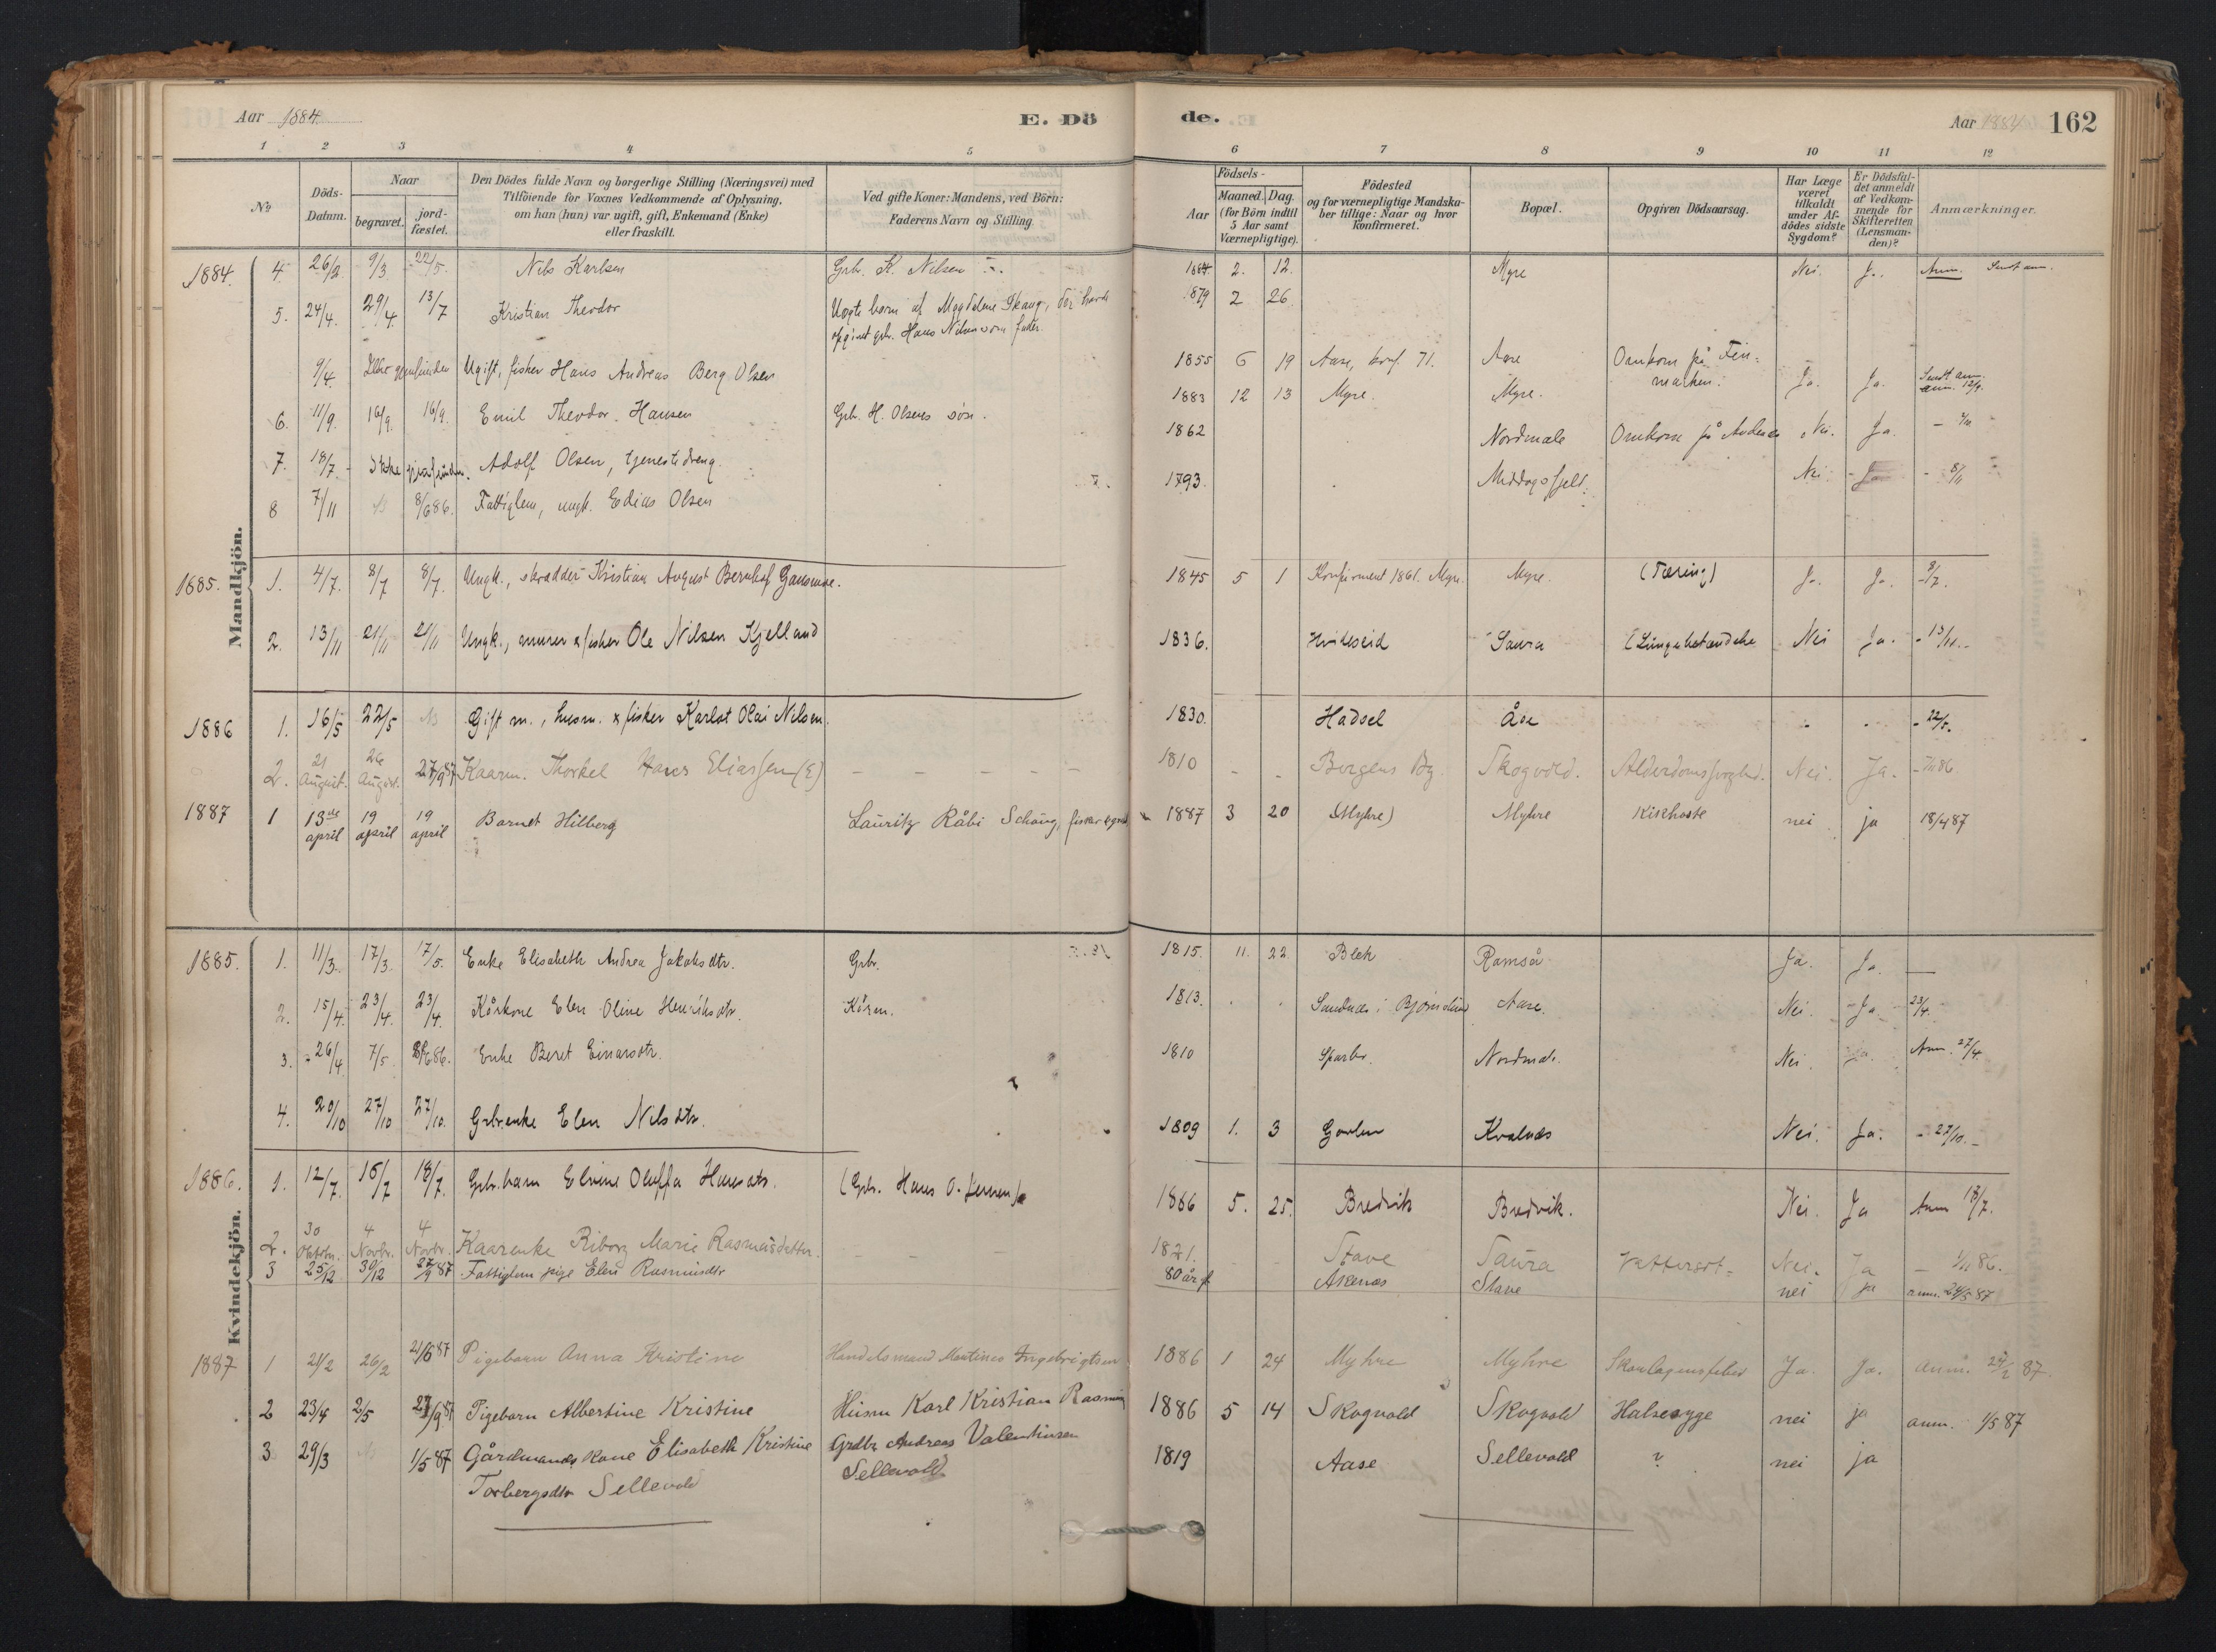 Aar 1884. E. Dö de. Aar 1884 162
1 2 3 4 5 6 7 8 9 10 11 12
No
Döds-Datum.
Naar
begravet.
jord-fæstet.
Den Dödes fulde Navn og borgerlige Stilling (Næringsvei) med
Tilföiende for Voxnes Vedkommende af Oplysning,
om han (hun) var ugift, gift, Enkemand (Enke)
eller fraskilt.
Ved gifte Koner: Mandens, ved Börn:
Faderens Navn og Stilling
Födsels-
Aar Maaned. Dag.
(for Börn indtil
5 Aar samt
Værnepligtige).
Födested
og for værnepligtige Mandska-
ber tillige: Naar og hvor
konfirmeret.
Bopæl.
Opgiven Dödsaarsag.
Har Læge
været
tilkaldt
under Af-
dödes sidste
Sygdom?
Er Dödsfal-
det anmeldt
af Vedkom-
mende for
Skifteretten
(Lensman-
den)?
Anmærkninger.
Mandkjön.
1884. 4. 26/2 9/3 22/5. Nils Karlsen Grb. K. Nilsen 1884 2. 12. Myre Nei. Ja. Anm.
5. 24/4. 29/4. 13/7 Kristian Theodor Uægte barn af Magdelene Skaug, der havde 1879 2 26
opgivet grb. Hans Nilsen som fader.
9/4. Ikke gjenfunden Ugift, fisker Hans Andreas Berg Olsen 1855 6 19 Aase, konf. 71. Aase Omkom på Fin-
marken. Ja. Ja. Sendt anm.
6. 11/9. 16/9. 16/9. Emil Theodor Hansen Grb. H. Olsens søn. 1883 12 13 Myre. Myre. anm. 12/9.
7. 18/7. Ikke gjenfunden. Adolf Olsen, tjenestedreng. 1862 Nordmale Omkom på Andenes Nei. Ja.
8 7/11 8/6 86. Fattiglem, ungk. Edias Olsen 1793. Middagsfjeld. Nei Ja - 8/11
1885. 1. 4/7. 8/7 8/7. Ungk., skrædder Kristian August Bernhof Gausmoe. 1845 5 1 Konfirmeret 1861. Myre. Myre. (Tæring) Ja. Ja. 8/7.
2. 13/11 21/11 21/11 Ungk., murer & fisker Ole Nilsen Kjelland 1836. Hvideseid Saura (Lungebetændelse Nei Ja. - 13/11.
1886 1. 16/5 22/5 Gift m., husm. & fisker Karlot Olai Nilsen. 1830. Hadsel Åse - 22/5.
2. 21 August. 26 August. 27/9 87 Kaarm. Thorkel Hans Eliassen (E) - - - - - 1810 - - Bergens By. Skogvold. Alderdomssvaghed. Nei. Ja.
1887 1 13de april 19 april 19 april Barnet Hilberg Lauritz Råbi Schaug, fisker 1887 3 20 (Myhre) Myhre Kikhoste nei ja 18/4 87
Kvindekjön.
1885. 1. 11/3. 17/3. 17/5. Enke Elisabeth Andrea Jakobsdtr. Grb. 1815. 11. 22. Blek Ramså Ja. Ja. —
2. 15/4. 23/4. 23/4. Kårkone Elen Oline Henriksdtr. Kårm. 1813. Sandnes i Bjørnskind Aase. Nei. Ja. 23/4.
3. 26/4. 7/5. 8/6 86. Enke Beret Einarsdtr. 1810 Sparbo. Nordmale. Nei. Ja. Anm. 27/4.
4. 20/10 27/10 27/10. Grb.enke Elen Nilsdtr. 1809 1. 3 Kvalnæs Nei. Ja. - 27/10. -
1886. 1. 12/7. 15/7 18/7. Grb.barn Elvine Oluffa Hansdtr. (Grb. Hans O. Jensen) 1886 5. 25. Bredvik Bredvik. Nei. Ja Anm 18/7.
2. 30 Oktobr. 4 Novbr. 4 Novbr. Kaarenke Riborg Marie Rasmusdatter. - - - 1821. - - Stave Saura Vattersot - Nei. Ja - 1/11 86.
3 25/12 30/12 27/9 87 Fattiglem pige Elen Rasmusdtr 80 år gl. Åknæs Stave nei ja anm. 24/5 87
1887 1 21/2 26/2 21/6 87 Pigebarn Anna Kristine Handelsmand Martinus Ingebrigtsen 1886 1 24 Myhre Myhre Skarlagensfeber Ja. Ja. anm. 24/2 87.
2 23/4 2/5 27/9 87 Pigebarn Albertine Kristine Husm Karl Kristian Rasmus 1886 5 14 Skogvold Skogvold Halsesyge nei ja anm. 1/5 87
3 29/3 1/5 87 Gårdmands kone Elisabeth Kristine Grdbr Andreas Valentinsen 1819 Aase Sellevold ? nei ja
Torbergsdtr Sellevold Sellevold